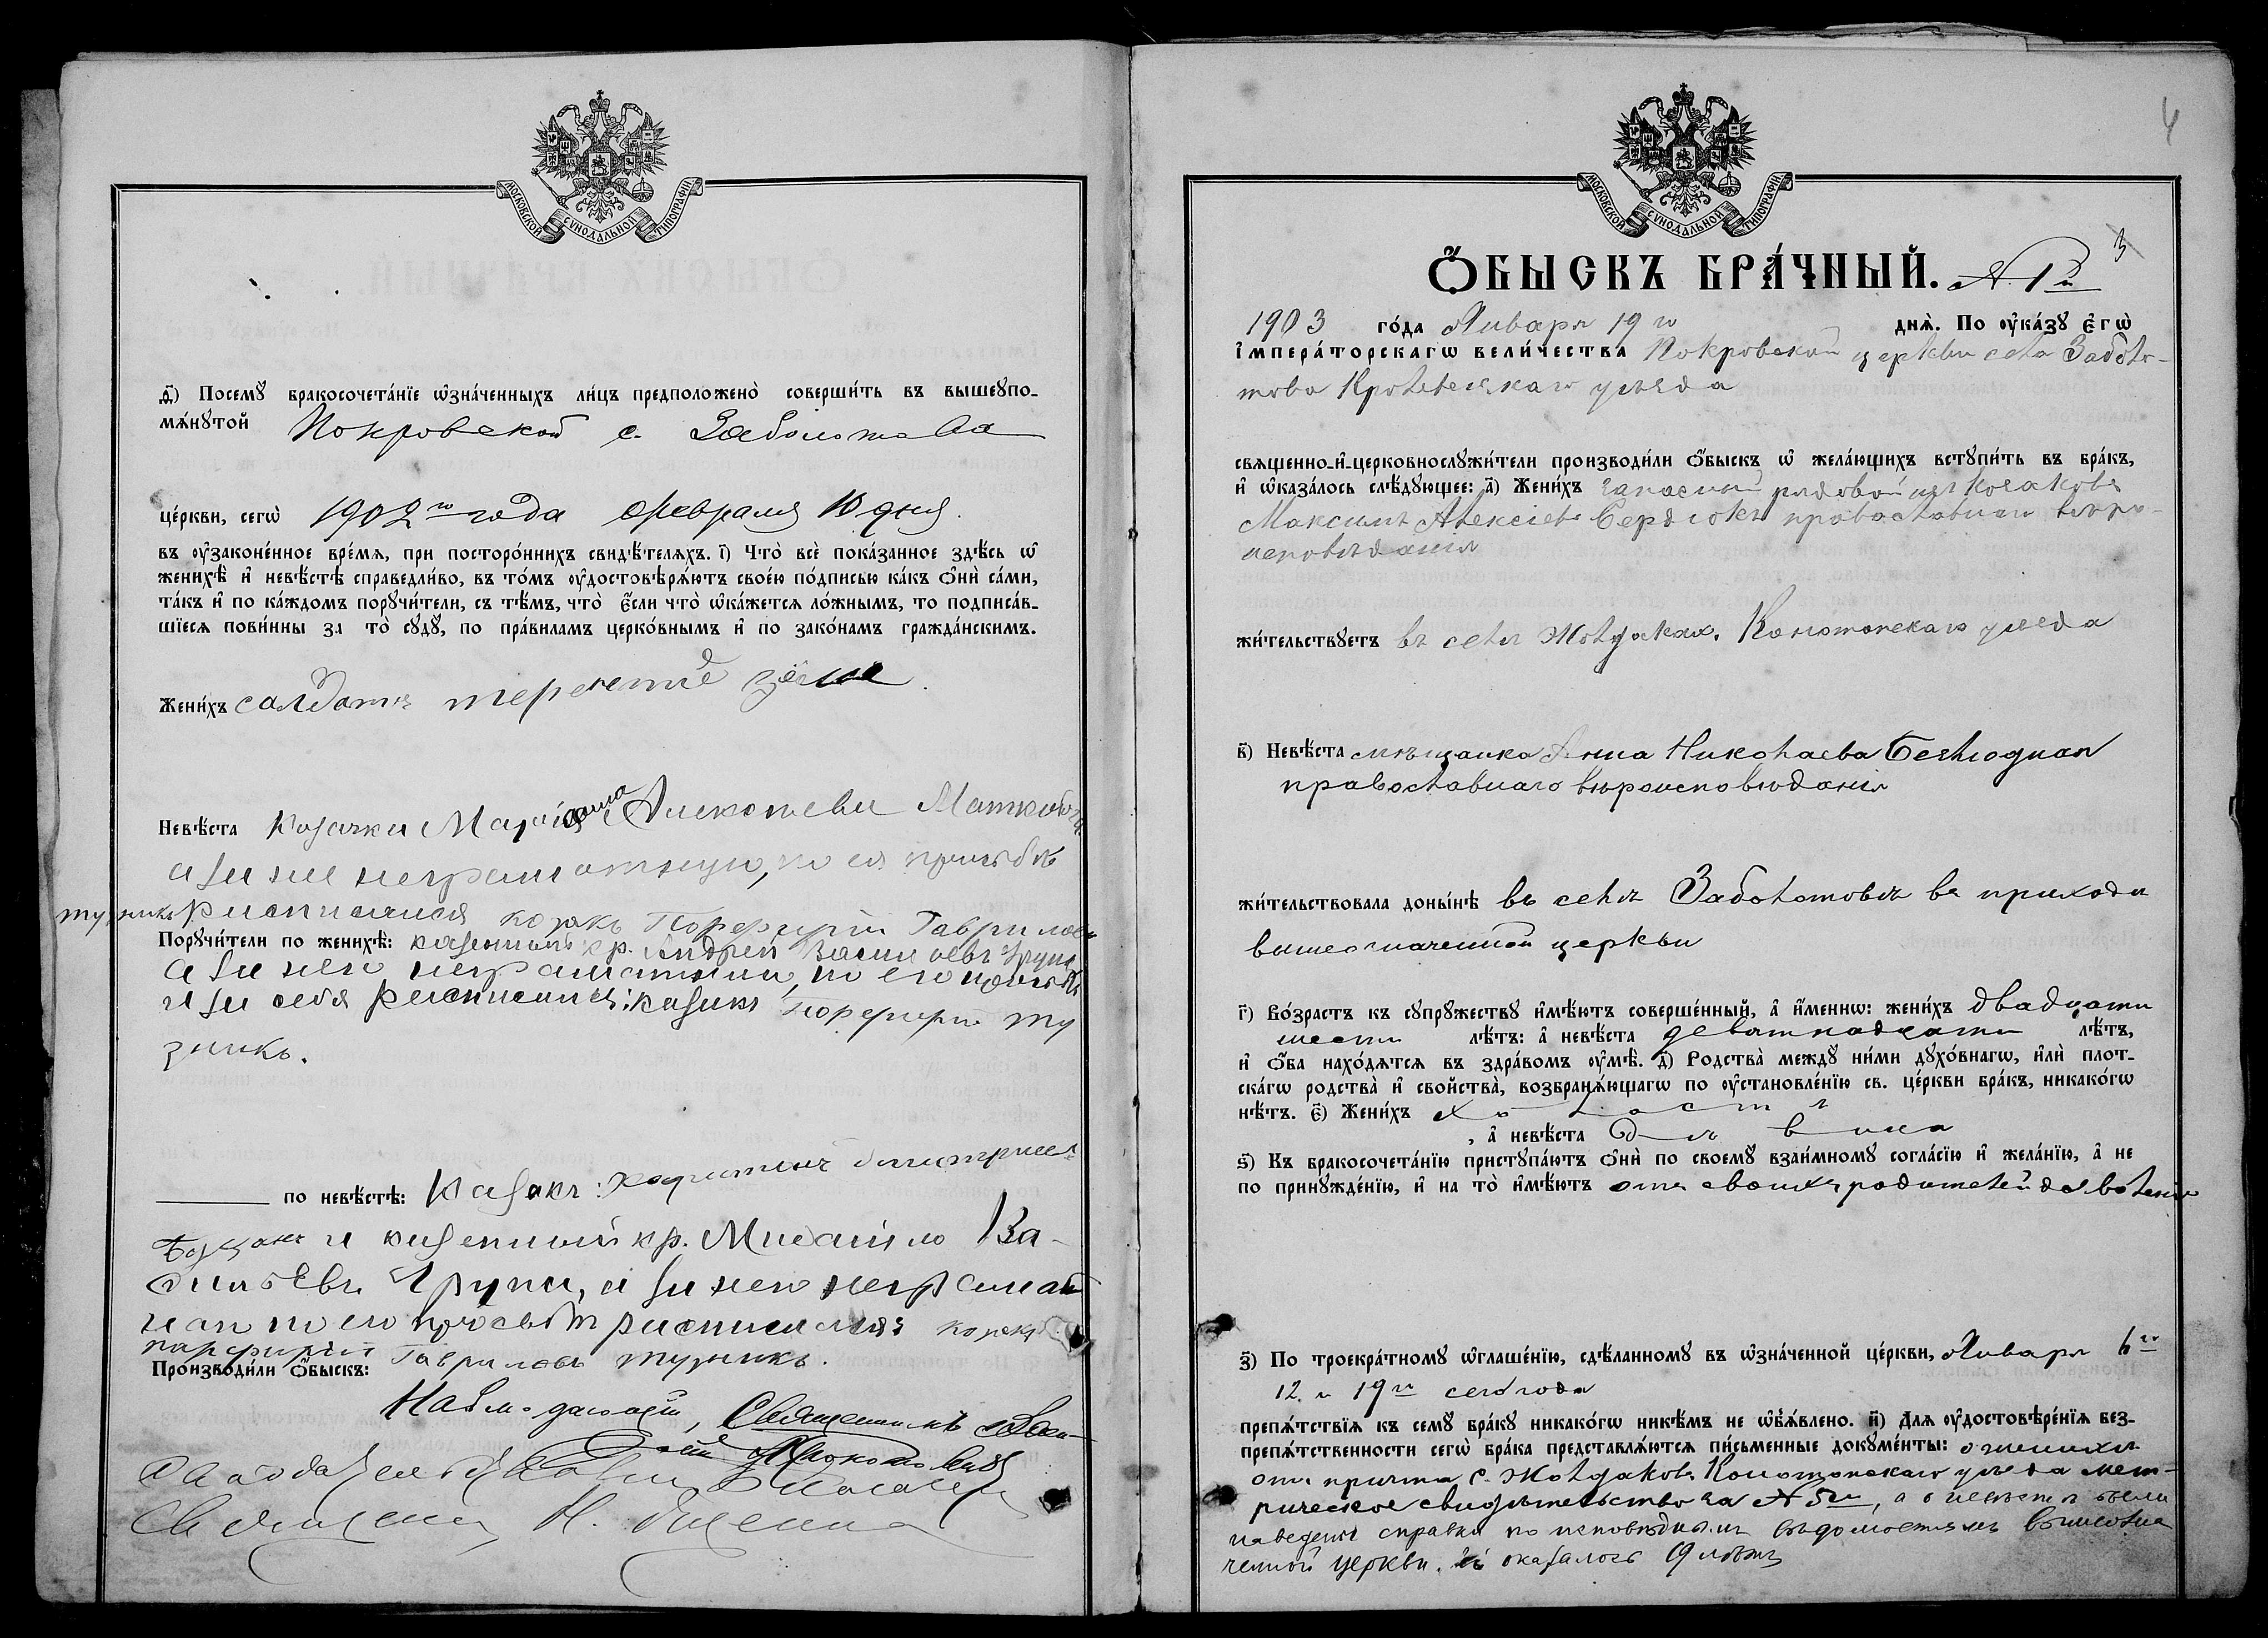 МОСКОВСКОЙ СѴНОДАЛЬНОЙ ТИПОГРАФІИ.
ѳ҃) Посемꙋ бракосочета́нїе ѡ҆зна́ченныхъ ли́цъ предположено̀ соверши́ть въ вышеꙋпо-
мѧ́нꙋтой Покровской с. Заболотова
це́ркви, сегѡ̀ 1902 го года февраля 10 дня.
въ ᲂу҆законе́нное вре́мѧ, при посторо́ннихъ свидѣ́телѧхъ. і҃) Что̀ всѐ пока́занное здѣ́сь ѡ҆
женихѣ̀ и҆ невѣ́стѣ справедли́во, въ то́мъ ᲂу҆достовѣрѧ́ютъ свое́ю по́дписью ка́къ ѻ҆нѝ са́ми,
та́къ и҆ по ка́ждомъ порꙋчи́тели, съ тѣ́мъ, что̀ є҆́сли что̀ ѡ҆ка́жетсѧ ло́жнымъ, то подписа́в-
шїесѧ пови́нны за то̀ сꙋдꙋ̀, по пра́виламъ церко́внымъ и҆ по зако́намъ гражда́нскимъ.
Жени́хъ салдатъ терентие
Невѣ́ста Козачка Марія
а за нее неграмотную, по ея просьбѣ
росписался козакъ Порфирій Гаврилов
Порꙋчи́тели по женихѣ̀: казенный кр. Андрей Василіевъ Група
а за него неграматнаго, по его просьбѣ
и за себя росписался: казакъ Порфирій Ту
зикъ.
по невѣ́стѣ: Казакъ:
и казенный кр. Михаило Ва-
сильевъ Група, а за него неграмат
наго по его просьбѣ росписался козакъ
парфирій Гавриловъ тузикъ.
Производи́ли ѻ҆́быскъ:
Наблюдающій, Священникъ
МОСКОВСКОЙ СѴНОДАЛЬНОЙ ТИПОГРАФІИ.
4
Ѻ҆́БЫСКЪ БРА́ЧНЫЙ. № 1й 3
1903 го́да Января 19 го днѧ̀. По ᲂу҆ка́зꙋ є҆гѡ̀
і҆мпера́торскагѡ вели́чества Покровской церкви села Заболо-
това Кролевецкаго уѣзда
свѧщенно-и҆-церковнослꙋжи́тели производи́ли ѻ҆́быскъ ѡ҆ жела́ющихъ встꙋпи́ть въ бра́къ,
и҆ ѡ҆каза́лось слѣ́дꙋющее: а҃) Жени́хъ запасный рядовой изъ козаковъ
Максимъ Алексіевъ Сердюкъ православнаго вѣро-
исповѣданія
жи́тельствꙋетъ въ селѣ Жолдакахъ, Конотопскаго уѣзда
в҃) Невѣ́ста мѣщанка Анна Николаева Безлюдная
православнаго вѣроисповѣданія
жи́тельствовала доны́нѣ въ селѣ Заболотовѣ въ приходѣ
вышеозначенной церкви
г҃) Во́зрастъ къ сꙋпрꙋ́жествꙋ и҆мѣ́ютъ соверше́нный, а҆ и҆́меннѡ: жени́хъ двадцати
шести лѣ́тъ: а҆ невѣ́ста девятнадцати лѣ́тъ,
и҆ ѻ҆́ба нахо́дѧтсѧ въ здра́вомъ ᲂу҆мѣ̀. д҃) Родства̀ междꙋ̀ ни́ми дꙋхо́внагѡ, и҆лѝ плот-
ска́гѡ родства̀ и҆ свойства̀, возбранѧ́ющагѡ по ᲂу҆становле́нїю св. це́ркви бра́къ, никако́гѡ
нѣ́тъ. є҃) Жени́хъ холостъ
, а҆ невѣ́ста дѣвица
ѕ҃) Къ бракосочета́нїю пристꙋпа́ютъ ѻ҆нѝ по своемꙋ̀ взаи́мномꙋ согла́сїю и҆ жела́нїю, а҆ не
по принꙋжде́нїю, и҆ на то̀ и҆мѣ́ютъ отъ своихъ родителей дозволеніе
з҃) По троекра́тномꙋ ѡ҆глаше́нїю, сдѣ́ланномꙋ въ ѡ҆зна́ченной це́ркви, Января 6 го
12 и 19 го сего года
препѧ́тствїѧ къ семꙋ̀ бра́кꙋ никако́гѡ никѣ́мъ не ѡ҆б̾ѧ́влено. и҃) Длѧ ᲂу҆достовѣре́нїѧ без-
препѧ́тственности сегѡ̀ бра́ка представлѧ́ютсѧ пи́сьменные докꙋме́нты: о женихѣ
отъ причта с. Жолдаковъ Конотопскаго уѣзда мет-
рическое свидѣтельство за № 5м, а о невѣстѣ были
наведены справки по исповѣднымъ вѣдомостямъ вышеозна
ченной церкви, оказалось 19 лѣтъ